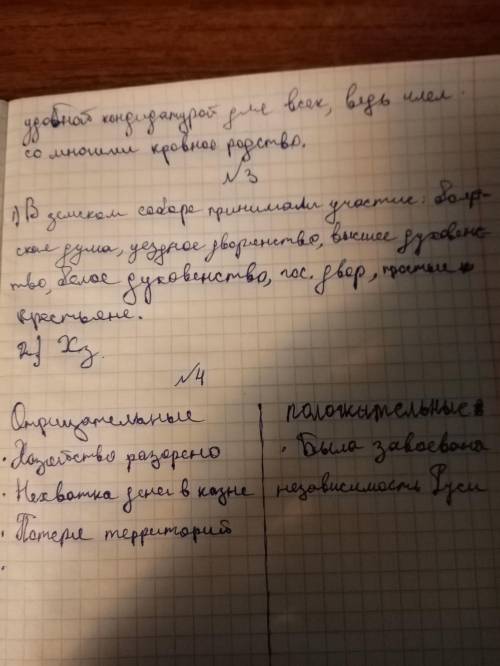 удобной кондидатурой для всех, ведь имел
со многими кровное родство.
№3
1) В земском соборе принимали участие: бояр-
ская дума, уездное дворянство, высшее духовенс-
тво, белое духовенство, гос. двор, простые
крестьяне.
2) Хз.
№4
Отрицательные
положительные
· Хозяйство разорено
· Была завоевана
· Нехватка денег в казне
независимость Руси
· Потеря территорий
·